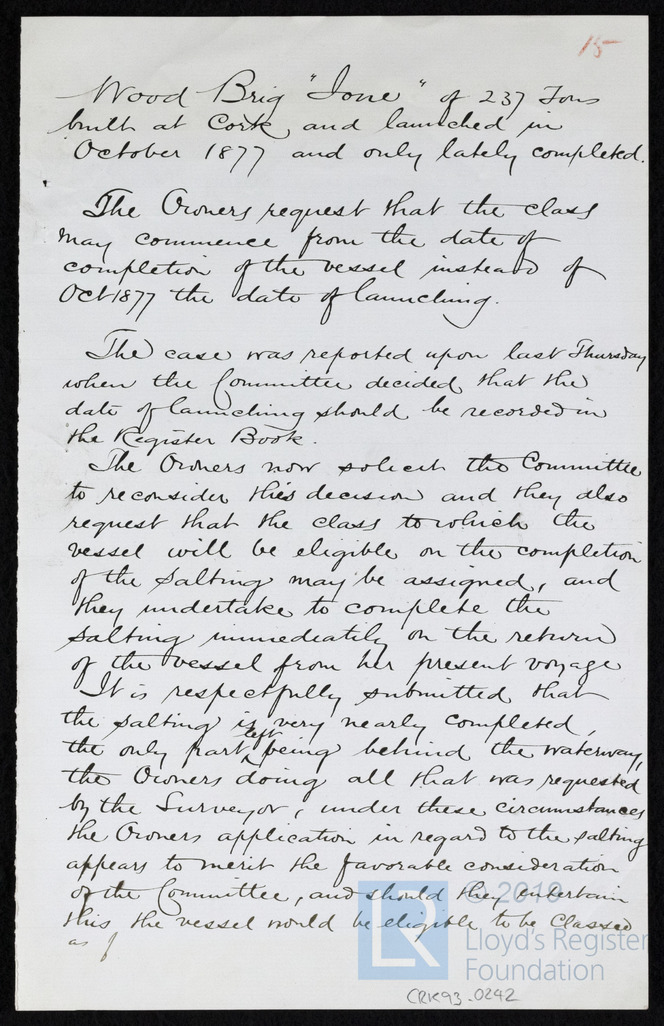 15
Wood Brig "Ione" of 237 Tons
built at Cork, and launched in
October 1877 and only lately completed.
The Owners request that the class
may commence from the date of
completion of the vessel instead of
Oct 1877 the date of launching.
The case was reported upon last Thursday
when the Committee decided that the
date of launching should be recorded in
the Register Book.
The Owners now solicit the Committee
to reconsider this decision and they also
request that the class to which the
vessel will be eligible on the completion
of the salting may be assigned, and
they undertake to complete the
salting immediately on the return
of the vessel from her present voyage
It is respectfully submitted that
the salting is very nearly completed,
the only part left being behind the waterway,
the Owners doing all that was requested
by the Surveyor, under these circumstances
the Owners application in regard to the salting
appears to merit the favorable consideration
of the Committee, and should they entertain
this the vessel would be eligible to be classed
as f
© 2019
Lloyd's Register
Foundation
LR
CRK93-0242